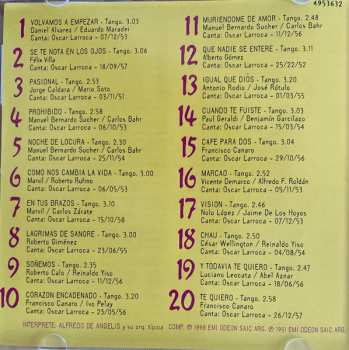 4951632
1 VOLVAMOS A EMPEZAR - Tango. 3.06
Daniel Alvarez / Eduardo Maradei
Canta: Oscar Larroca - 07/12/53
2 SE TE NOTA EN LOS OJOS - Tango. 3.04
Félix Villa
Canta: Oscar Larroca - 18/09/57
3 PASIONAL - Tango. 2.53
Jorge Caldara / Mario Soto
Canta: Oscar Larroca - 03/11/51
4 PROHIBIDO - Tango. 2.58
Manuel Bernardo Sucher / Carlos Bahr
Canta: Oscar Larroca - 06/10/53
5 NOCHE DE LOCURA - Tango. 2.30
Manuel Bernardo Sucher / Carlos Bahr
Canta: Oscar Larroca - 25/11/54
6 COMO NOS CAMBIA LA VIDA - Tango. 3.00
Marvil / Roberto Rufino
Canta: Oscar Larroca - 06/05/53
7 EN TUS BRAZOS - Tango. 3.10
Marvil / Carlos Zárate
Canta: Oscar Larroca - 15/10/58
8 LAGRIMAS DE SANGRE - Tango. 3.00
Roberto Giménez
Canta: Oscar Larroca - 23/06/55
9 SOÑEMOS - Tango. 3.15
Roberto Caló / Reinaldo Yiso
Canta: Oscar Larroca - 11/12/56
10 CORAZON ENCADENADO - Tango. 3.21
Francisco Canaro / Ivo Pelay
Canta: Oscar Larroca - 23/05/56
11 MURIENDOME DE AMOR - Tango. 2.48
Manuel Bernardo Sucher / Carlos Bahr
Canta: Oscar Larroca - 11/12/56
12 QUE NADIE SE ENTERE - Tango. 3.11
Alberto Gómez
Canta: Oscar Larroca - 25/22/52
13 IGUAL QUE DIOS - Tango. 3.20
Antonio Rodio / José Rótulo
Canta: Oscar Larroca - 01/03/55
14 CUANDO TE FUISTE - Tango. 3.01
Paul Geraldi / Benjamín Garcilazo
Canta: Oscar Larroca - 15/03/54
15 CAFE PARA DOS - Tango. 3.04
Francisco Canaro
Canta: Oscar Larroca - 29/10/56
16 MARCAO - Tango. 2.52
Vicente Demarco / Alfredo F. Roldán
Canta: Oscar Larroca - 05/11/53
17 VISION - Tango. 2.46
Nolo López / Jaime De Los Hoyos
Canta: Oscar Larroca - 07/12/53
18 CHAU - Tango. 2.59
César Wellington / Reinaldo Yiso
Canta: Oscar Larroca - 04/08/54
19 Y TODAVIA TE QUIERO - Tango. 2.47
Luciano Leocata / Abel Aznar
Canta: Oscar Larroca - 18/12/56
20 TE QUIERO - Tango. 2.58
Francisco Canaro
Canta: Oscar Larroca - 26/12/57
INTERPRETE: ALFREDO DE ANGELIS y su orq. típica COMP. ℗ 1998 EMI ODEON SAIC ARG. © 1991 EMI ODEON SAIC ARG.